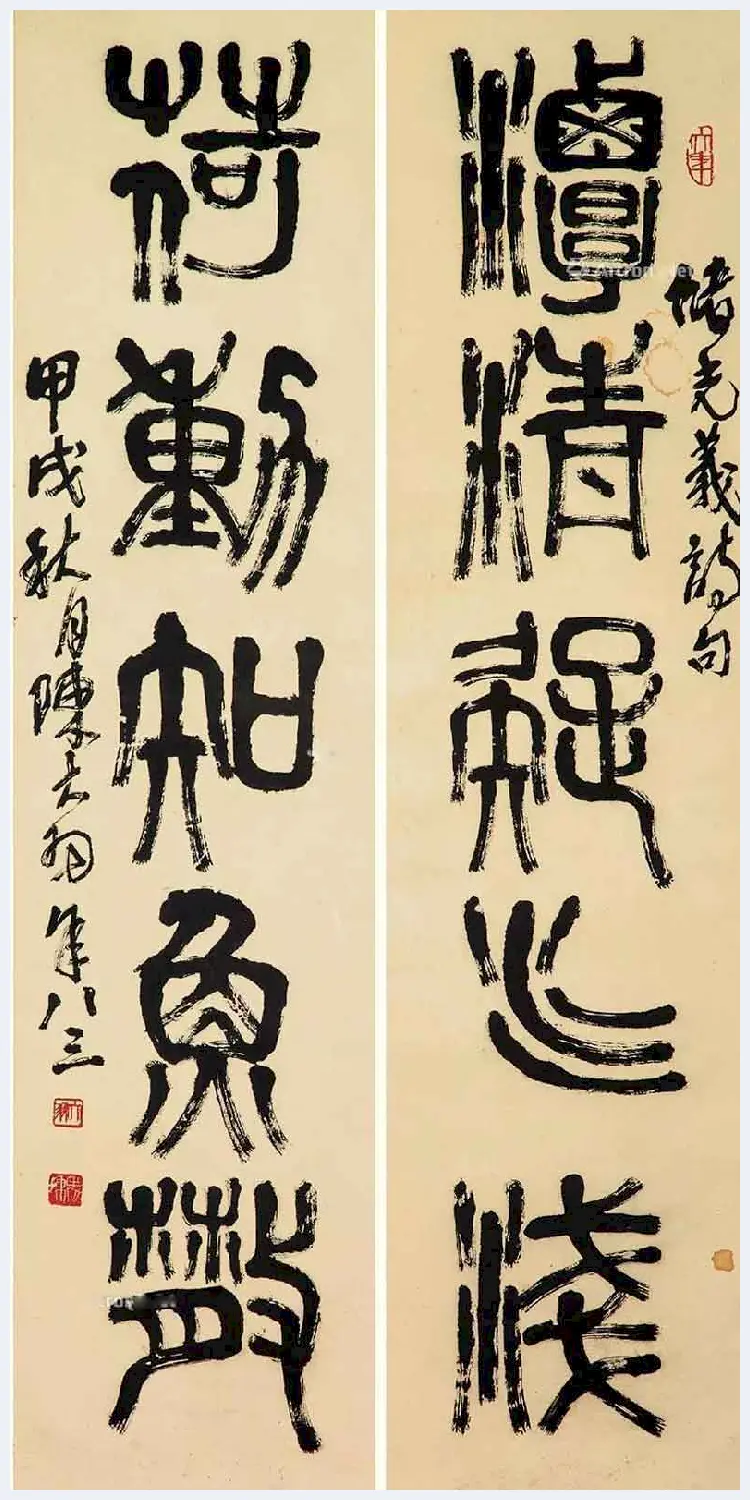 儲光羲詩句
潭清疑水淺
荷動知魚散
甲戌秋月陳大羽年八三